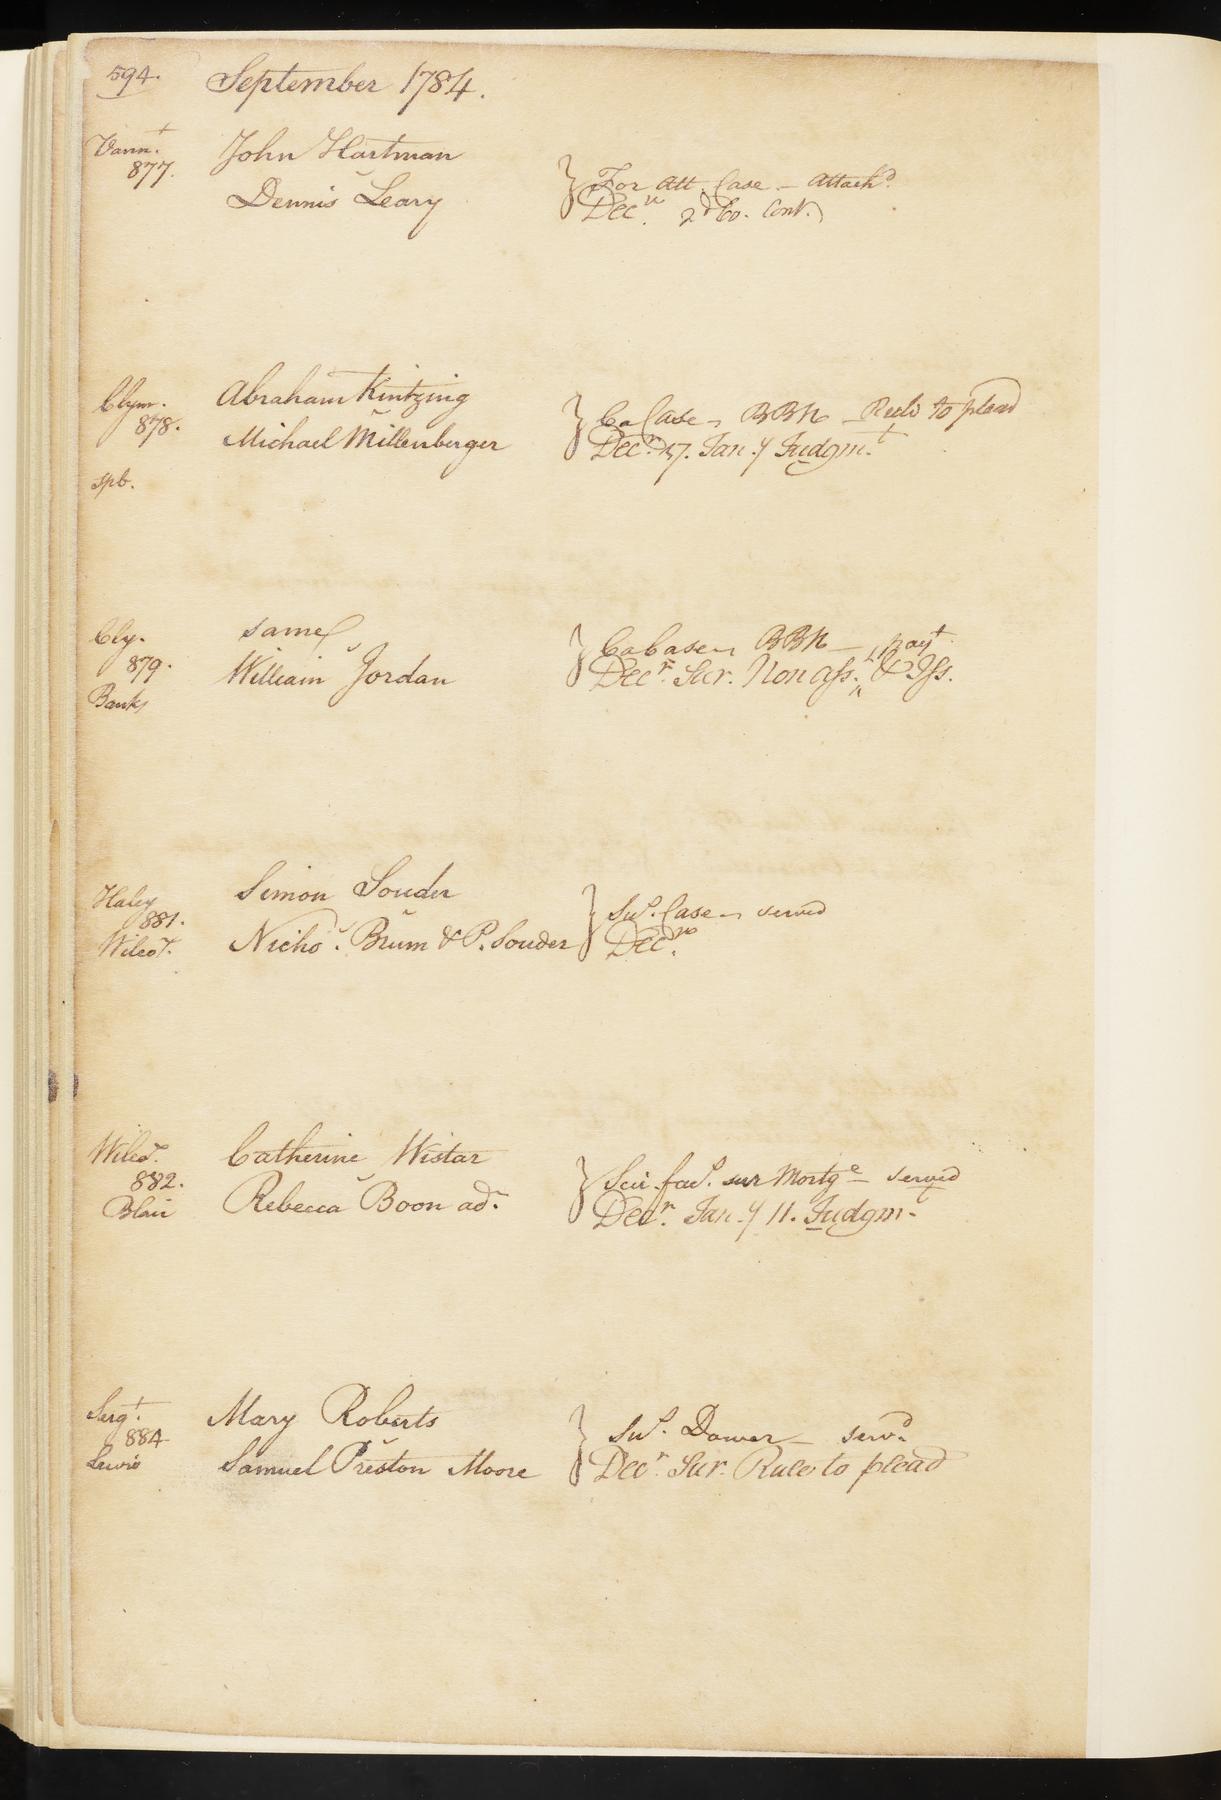 594. September 1784.
Vann.t
877.
John Hartman
v
Dennis Leary
For Att. Case — Attach.d
Decr. 2d Co. Cont.
Clym.
878.
spb.
Abraham Kintzing
v
Michael Millenberger
Ca Case — BBK — Rule to plead
Decr. 17. Jan.y Judgm.t
Cly.
879.
Banks
same
v
William Jordan
Ca Case — BBK —
Decr. Sur. Non ass. " payt. & Iss.
Haley
881.
Wilcot.
Simon Souder
v
Nicho.s Brum & P. Souder
Su.s Case — served
Decr.
Wilcot.
882.
Blair
Catherine Wistar
v
Rebecca Boon adr.
Sci. fac.s sur Mortge — served
Decr. Jan.y 11. Judgm.t
Sergt.
884
Lewis
Mary Roberts
v
Samuel Preston Moore
Su.s Dower — serv.d
Decr. Sur. Rule to plead